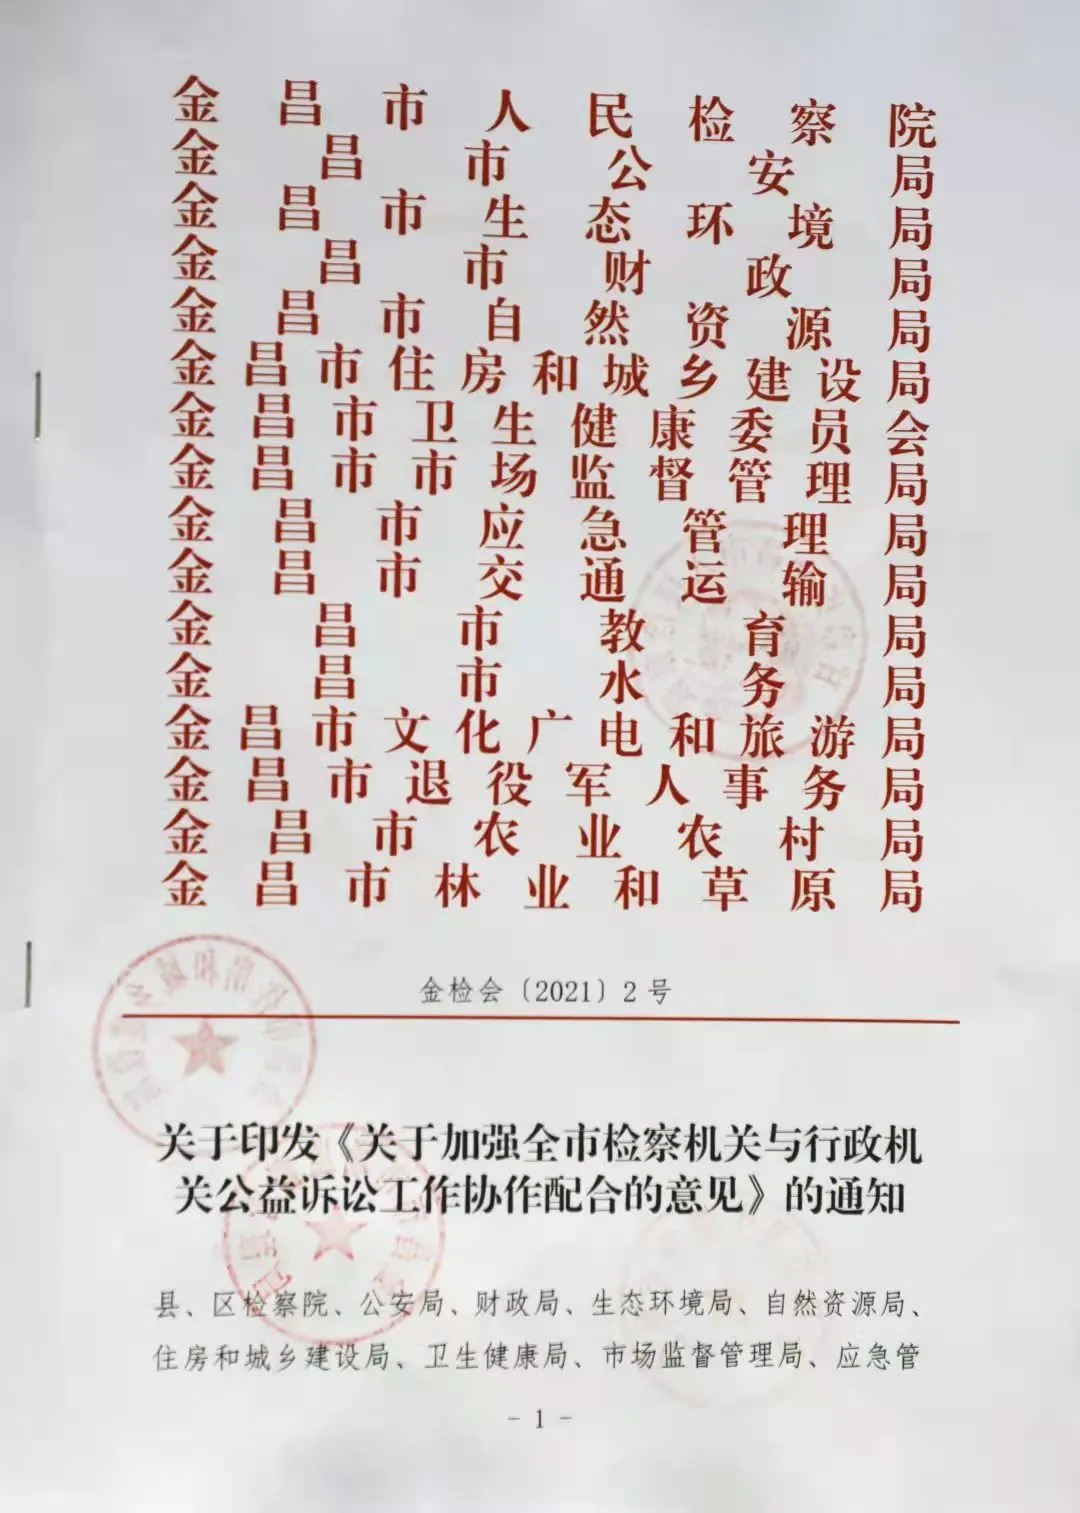 金昌市人民检察院
金昌市公安局
金昌市生态环境局
金昌市财政局
金昌市自然资源局
金昌市住房和城乡建设局
金昌市卫生健康委员会
金昌市市场监督管理局
金昌市应急管理局
金昌市交通运输局
金昌市教育局
金昌市水务局
金昌市文化广电和旅游局
金昌市退役军人事务局
金昌市农业农村局
金昌市林业和草原局
金检会〔2021〕2号
关于印发《关于加强全市检察机关与行政机
关公益诉讼工作协作配合的意见》的通知
县、区检察院、公安局、财政局、生态环境局、自然资源局、
住房和城乡建设局、卫生健康局、市场监督管理局、应急管
- 1 -